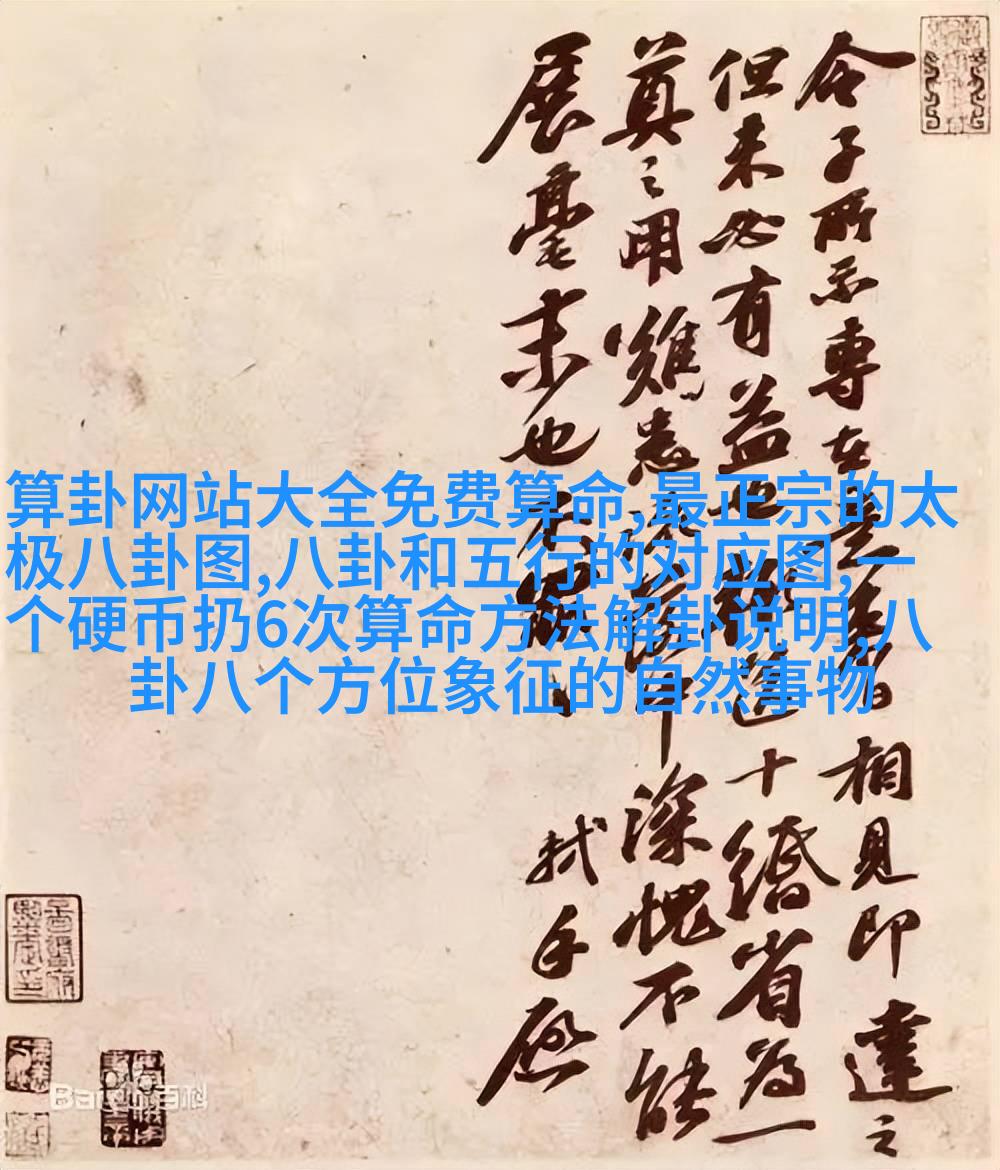 令子所示專在 相見即達之
但未必有益也 送十 省為一
奠之用難患 中深愧不能
展毫末也 軾手啟
算卦网站大全免费算命,最正宗的太
极八卦图,八卦和五行的对应图,一
个硬币扔6次算命方法解卦说明,八
卦八个方位象征的自然事物
Baidu百科